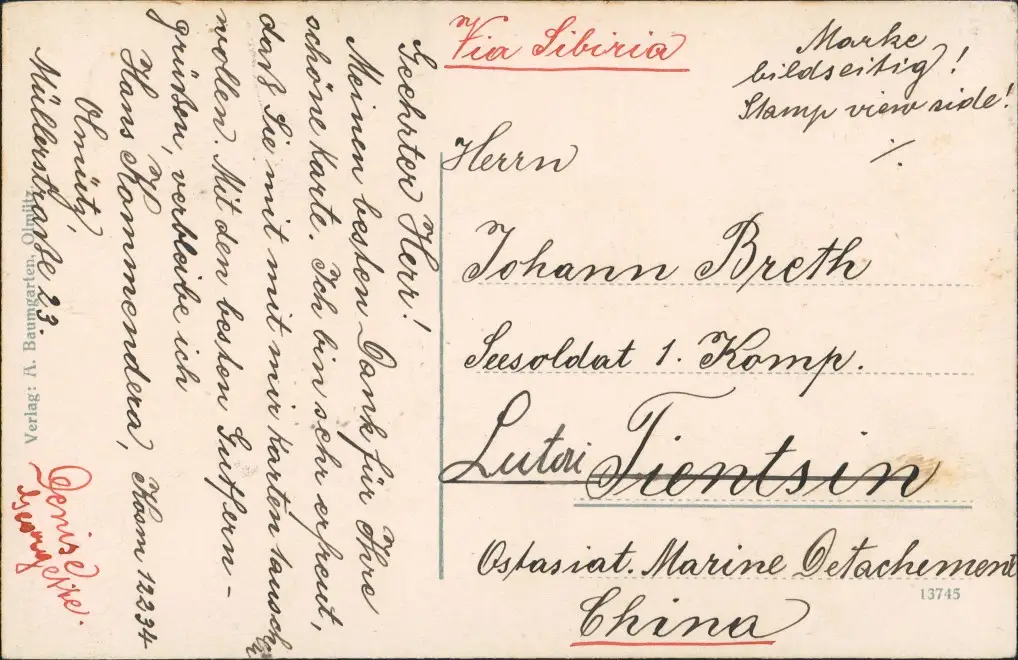 Via Sibiria
Marke
bildseitig!
Stamp view side!
Herrn
Johann Breth
Seesoldat 1. Komp.
Lutai Tientsin
Ostasiat. Marine Detachement
China
13745
Geehrter Herr!
Meinen besten Dank für Ihre
schöne Karte. Ich bin sehr erfreut,
daß Sie mit mit mir Karten tausch
wollen. Mit den besten Gutfern-
grüßen, verbleibe ich
Hans Kommendera, Kosm 12234
Olmütz,
Müllerstraße 23.
Verlag: A. Baumgarten, Olmütz
Denise
Georgette.